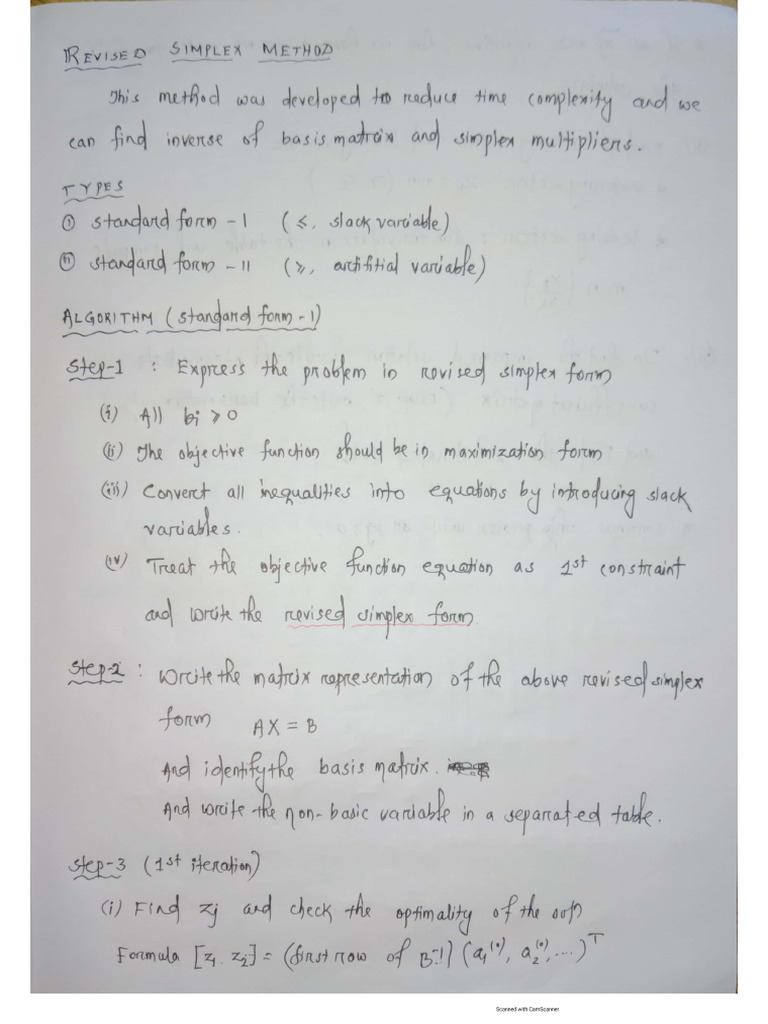 REVISED SIMPLEX METHOD
This method was developed to reduce time complexity and we
can find inverse of basis matrix and simplex multipliers.
TYPES
(i) standard form - I (≤, slack variable)
(ii) standard form - II (≥, artifitial variable)
ALGORITHM (standard form - 1)
Step-1 : Express the problem in revised simplex form
(i) All bi ≥ 0
(ii) The objective function should be in maximization form
(iii) Convert all inequalities into equations by introducing slack
variables.
(iv) Treat the objective function equation as 1st constraint
and write the revised simplex form
Step-2 : Write the matrix representation of the above revised simplex
form AX = B
And identify the basis matrix.
And write the non-basic variable in a separated table.
Step-3 (1st iteration)
(i) Find zj and check the optimality of the
Formula [z₁, z₂] = (first row of B⁻¹) (a₁⁽⁰⁾, a₂⁽⁰⁾, ...)ᵀ
Scanned with CamScanner